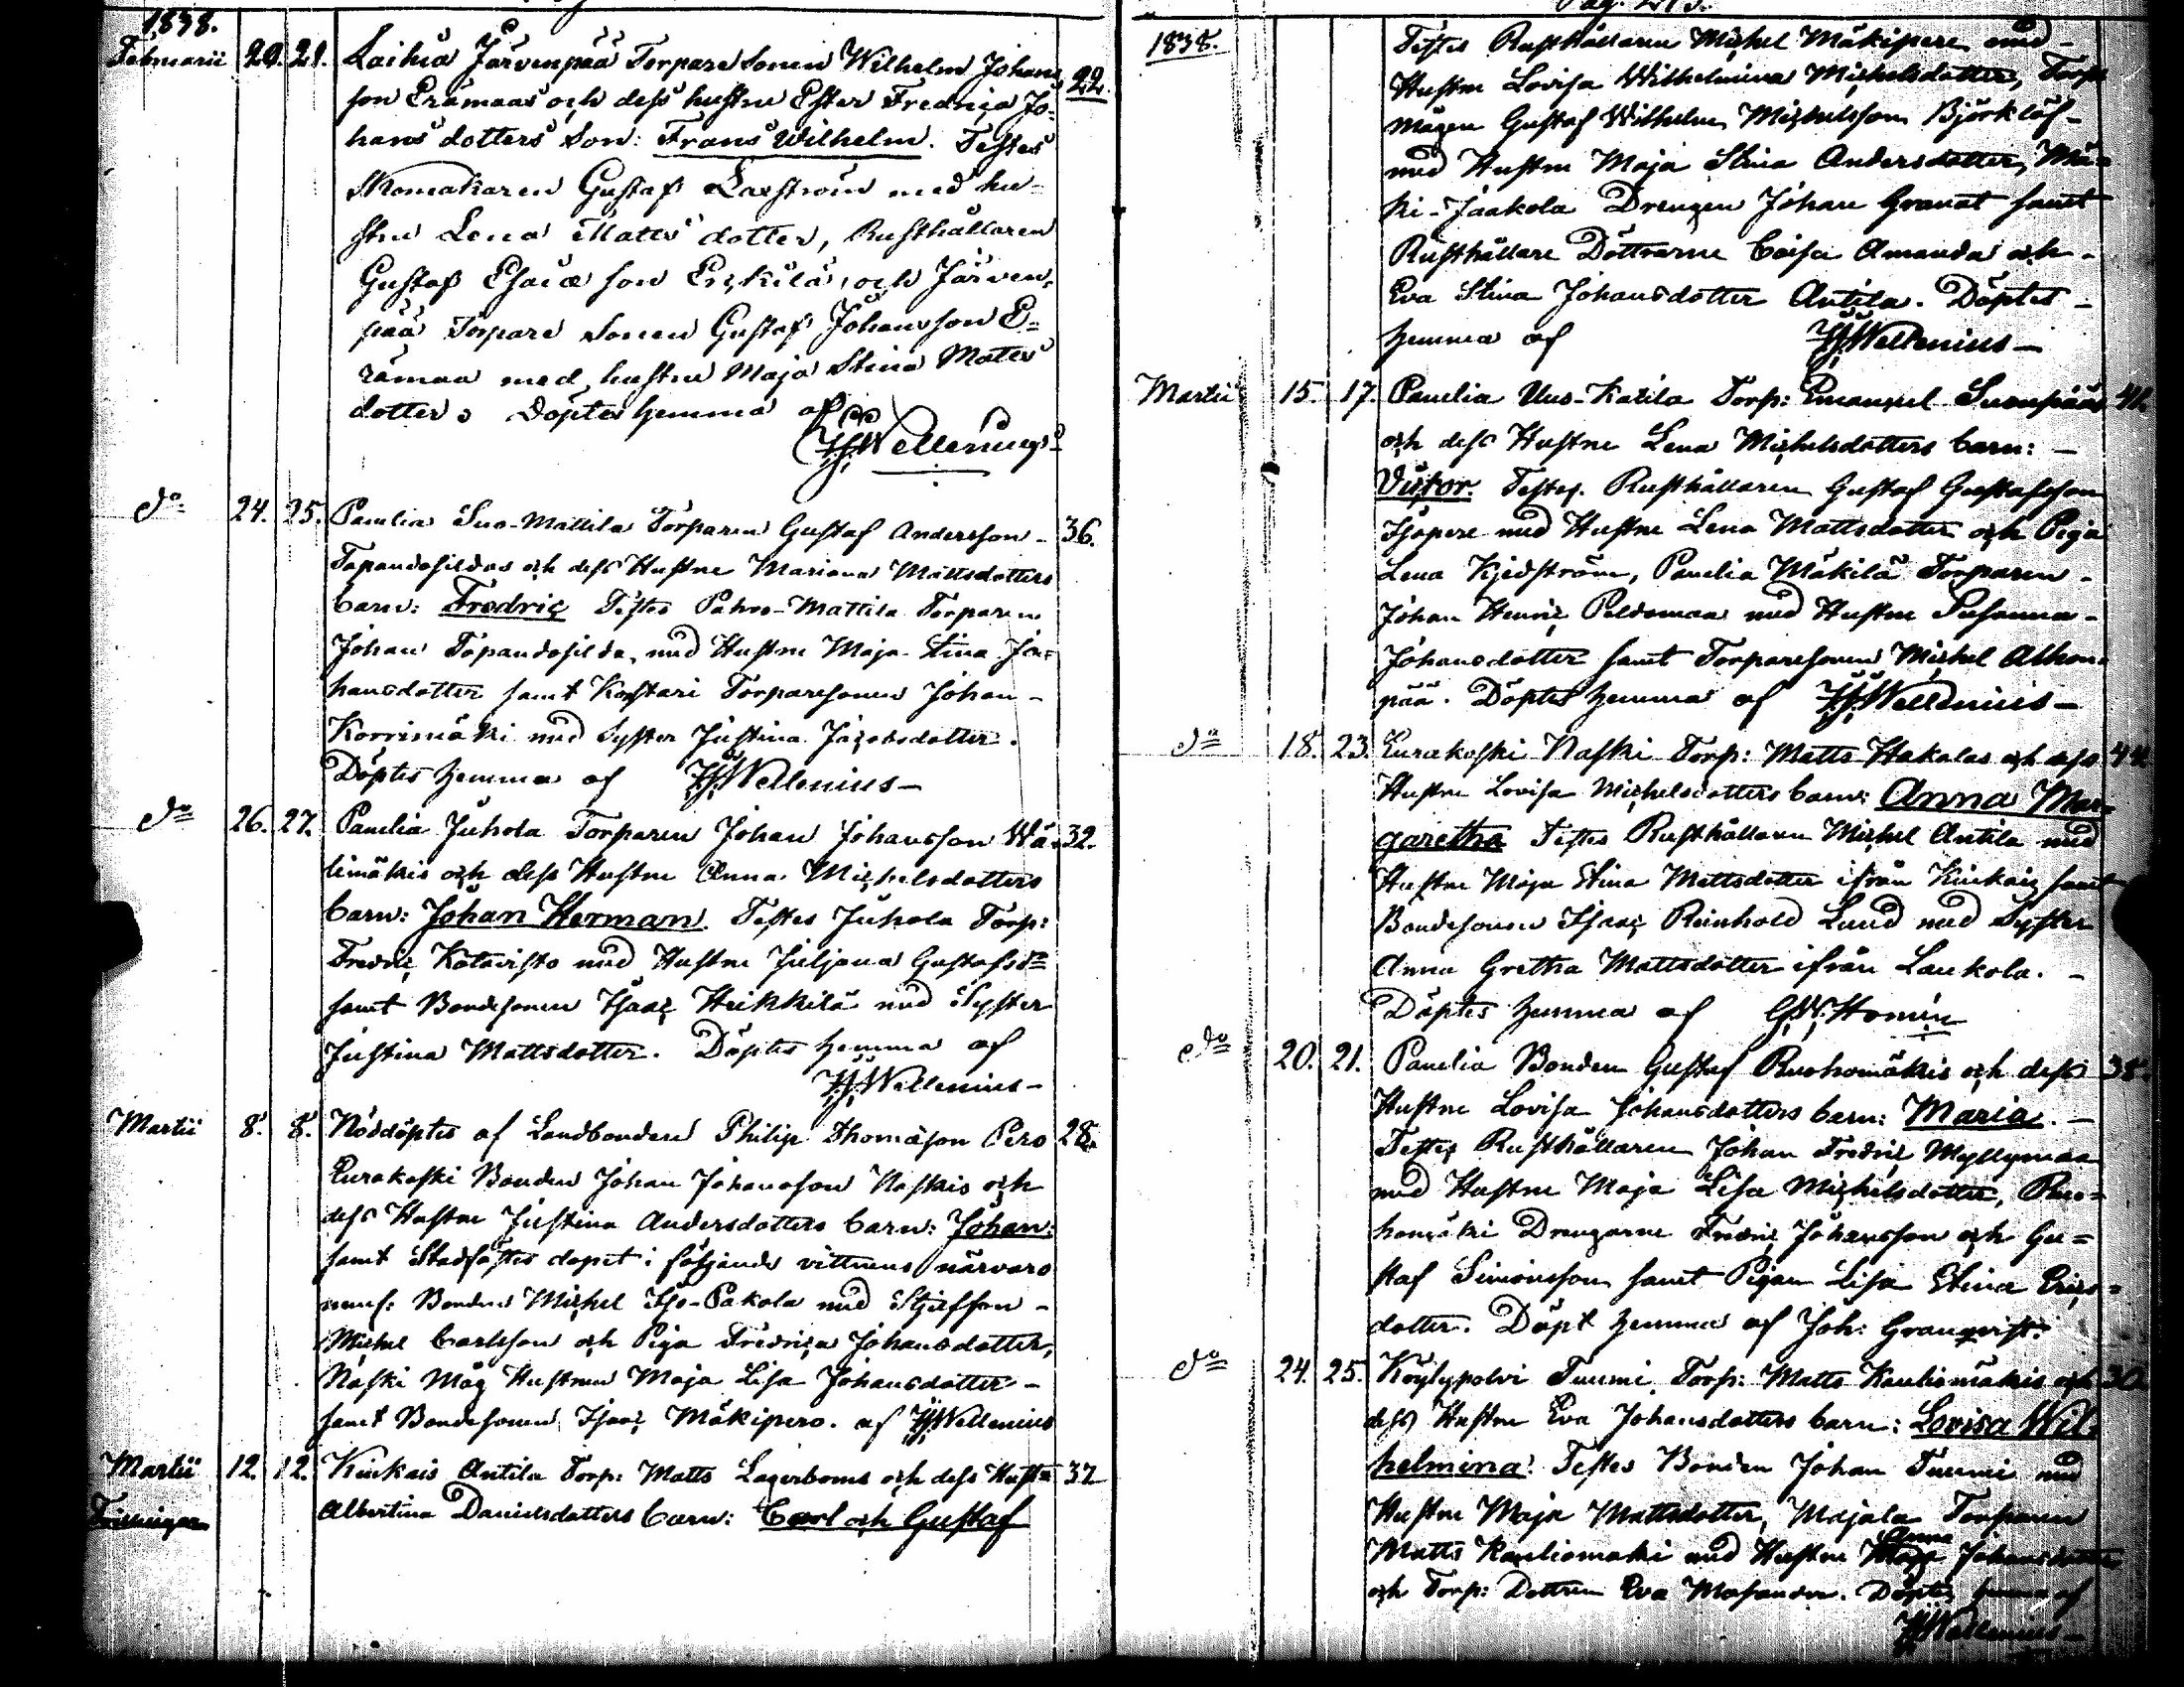 1838.
Februarii 20. 21. Laihia Järvenpää Torpare Sonen Wilhelm Johans
son Erämaas och dess hustru Ester Fredrica Jo- 22.
hans dotters Son: Frans Wilhelm. Testes
Skomakaren Gustaf Laxström med hu-
stru Lena Matts dotter, Rusthållaren
Gustaf Esaiæ son Erkkilä, och Järven-
pää Torpare Sonen Gustaf Johansson E=
rämaa med hustru Maja Stina Matts
dotter. Döptes hemma af
Wellenius
do 24. 25. Panelia Suo-Mattila Torparen Gustaf Andersson - 36.
och dess Hustru Mariana Mattsdotters
barn: Fredric Testes Mattila Torparen
Johan med Hustru Maja Stina Jo=
hansdotter samt Torparesonen Johan -
Korrimäki med Syster Justina Jacobsdotter.
Döptes hemma af Wellenius -
do 26. 27. Panelia Juhola Torparen Johan Johansson Wä- 32.
limäkis och dess Hustru Anna Michelsdotters
barn: Johan Herman. Testes Juhola Torp:
Fredric Katavisto med Hustru Juljana Gustafsdr
samt Bondesonen Isaac Heikkilä med Syster
Justina Mattsdotter. Döptes hemma af
Wellenius -
Martii 8. 8. Nöddöptes af Landbonden Philip Thomasson Pero 28.
Eurakoski Bonden Johan Johansson Naskis och
dess Hustru Justina Andersdotters barn: Johan:
samt Stadfästes dopet i följande vittnens närvaro
neml: Bonden Michel Iso-Pakola med Styfson -
Michel Carlsson och Piga Fredrica Johansdotter,
Naski Måg Hustrun Maja Lisa Johansdotter -
samt Bondesonen Isaac Mäkipero. af Wellenius
Martii 12. 12. Kiukais Antila Torp: Matts Lagerboms och dess Hustru 32
Albertina Danielsdotters barn: Carl och Gustaf
1838. Testes Rusthållaren Michel Mäkipere med -
Hustru Lovisa Wilhelmina Michelsdotter, Torp
mågen Gustaf Wilhelm Michelsson Björklöf -
med Hustru Maja Stina Andersdotter, Mä=
ki-Jaakola Drengen Johan Granat samt
Rusthållare Döttrarne Caisa Amanda och -
Eva Stina Johansdotter Antila. Döptes -
hemma af Wellenius -
Martii 15. 17. Panelia Uus-Katila Torp: Emanuel Suonpääs 41.
och dess Hustru Lena Michelsdotters barn: -
Victor. Testes. Rusthållaren Gustaf Gustafsson
Isopere med Hustru Lena Mattsdotter och Piga
Lena Kjedström, Panelia Mäkilä Torparen -
Johan Henric Peldomaa med Hustru Susanna -
Johansdotter samt Torparesonen Michel Alhon-
pää. Döptes hemma af Wellenius -
do 18. 23. Eurakoski Naski Torp: Matts Hakalas och dess 44.
Hustru Lovisa Michelsdotters barn: Anna Mar=
garetha Testes Rusthållaren Michel Antila med
Hustru Maja Stina Mattsdotter ifrån Kiukais samt
Bondesonen Isaac Reinhold Lund med Syster
Anna Gretha Mattsdotter ifrån Laukola. -
Döptes hemma af
do 20. 21. Panelia Bonden Gustaf Ruohomäkis och dess 38.
Hustru Lovisa Johansdotters barn: Maria. -
Testes Rusthållaren Johan Fredric Myllymaa
med Hustru Maja Lisa Michelsdotter, Ruo=
homäki Drengarne Fredric Johansson och Gu=
staf Simonsson samt Pigan Lisa Stina Erics-
dotter. Döpt hemma af Joh: Granqvist.
do 24. 25. Köylypolvi Tuomi Torp: Matts Kauliomäkis och 30.
dess Hustru Eva Johansdotters barn: Lovisa Wil-
helmina. Testes Bonden Johan Tuomi med
Hustru Maja Mattsdotter, Majala Torparen
Matts Kauliomäki med Hustru Anna Johansdotter
och Torp: Dottren Eva. Döptes hemma af
Wellenius -